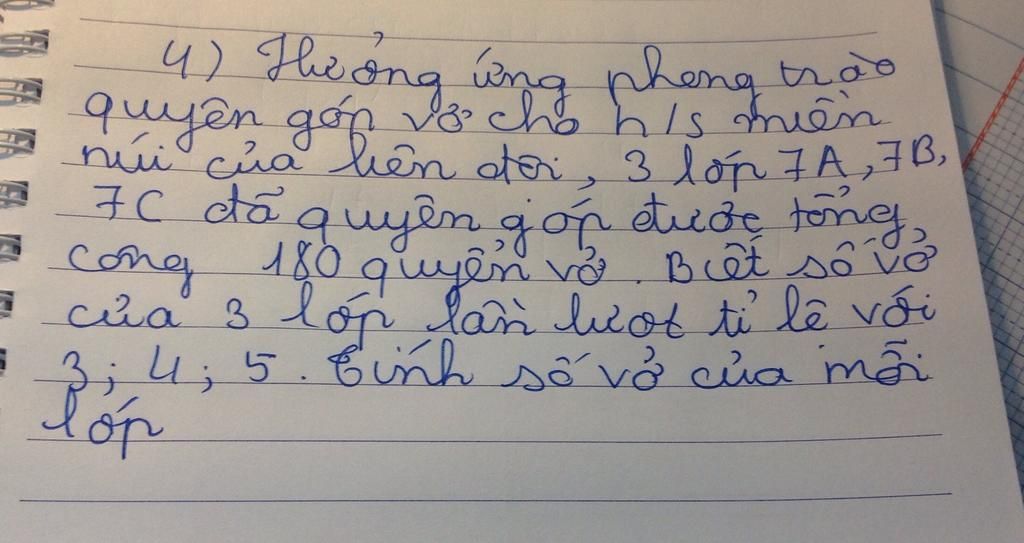 4) Hưởng ứng phong trào
quyên góp vở cho h/s miền
núi của liên đội, 3 lớp 7A, 7B,
7C đã quyên góp được tổng
cộng 180 quyển vở. Biết số vở
của 3 lớp lần lượt tỉ lệ với
3; 4; 5. Tính số vở của mỗi
lớp